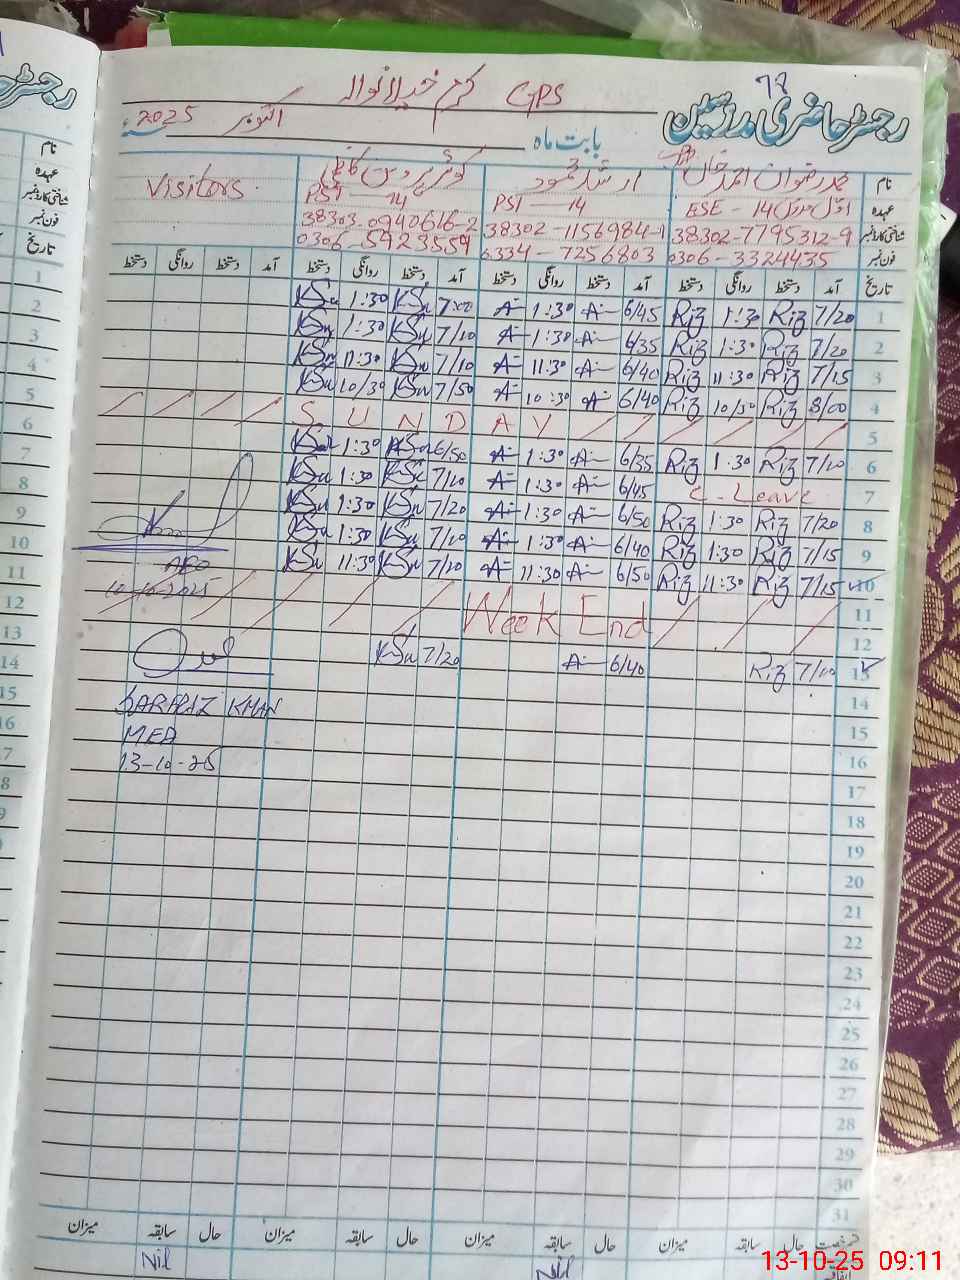 78
GPS کرم خیلانوالہ
رجسٹر حاضری مدرسین
بابت ماہ اکتوبر 2025ء
نام محمد رضوان احمد خان ارشد محمود کوثر پروین Visitors
عہدہ ESE - 14 PST - 14 PST - 14
شناختی کارڈ نمبر 38302-7795312-9 38302-1156984-1 38303-0940616-2
فون نمبر 0306-3324435 0334-7256803 0306-5923559
تاریخ آمد دستخط روانگی دستخط آمد دستخط روانگی دستخط آمد دستخط روانگی دستخط آمد دستخط روانگی دستخط
1 7/20 Riz 1:30 Riz 6/45 A 1:30 A 7:00 KSu 1:30 KSu
2 7/20 Riz 1:30 Riz 6/35 A 1:30 A 7/10 KSu 1:30 KSu
3 7/15 Riz 11:30 Riz 6/40 A 11:30 A 7/10 KSu 11:30 KSu
4 8/00 Riz 10/30 Riz 6/40 A 10:30 A 7/50 KSu 10/30 KSu
5 SUNDAY
6 7/10 Riz 1:30 Riz 6/35 A 1:30 A 6/50 KSu 1:30 KSu
7 C-Leave 6/45 A 1:30 A 7/10 KSu 1:30 KSu
8 7/20 Riz 1:30 Riz 6/50 A 1:30 A 7/20 KSu 1:30 KSu
9 7/15 Riz 1:30 Riz 6/40 A 1:30 A 7/10 KSu 1:30 KSu
10 7/15 Riz 11:30 Riz 6/50 A 11:30 A 7/20 KSu 11:30 KSu
10-10-2025
11 Week End
12
13 7/10 Riz 6/40 A 7/20 KSu
14
SARFRAZ KHAN
15
MEA
16
13-10-25
17
18
19
20
21
22
23
24
25
26
27
28
29
30
31
قسم رخصت حال سابقہ میزان حال سابقہ میزان حال سابقہ میزان حال سابقہ میزان
اتفاقیہ Nil Nil
13-10-25 09:11